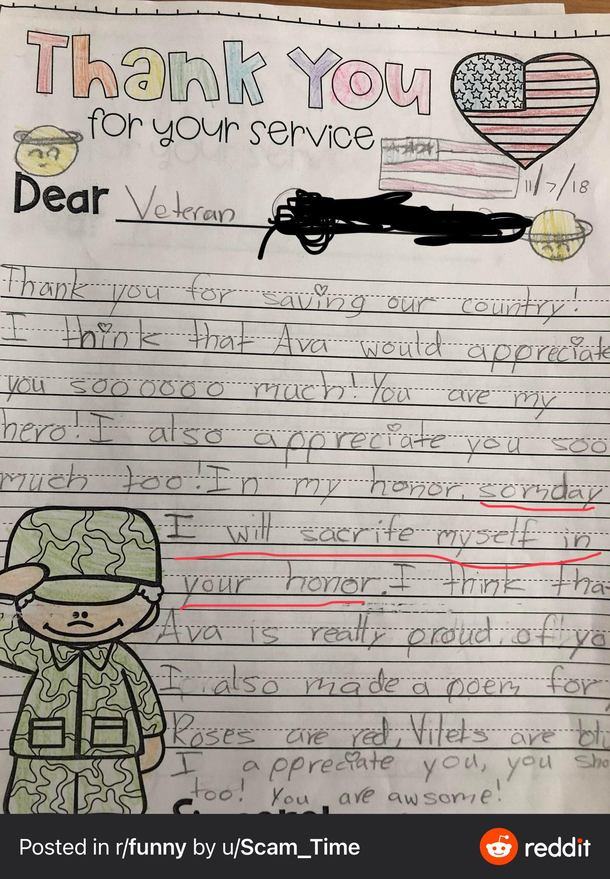 Thank You
for your service
11/7/18
Dear Veteran
Thank you for saving our country!
I think that Ava would appreciate
you soooooo much! You are my
hero! I also appreciate you soo
much too! In my honor, somday
I will sacrife myself in
your honor. I think tha
Ava is really proud of yo
I also made a poem for
Roses are red, Vilets are blu
I appreciate you, you sho
too! You are awsome!
Posted in r/funny by u/Scam_Time
reddit